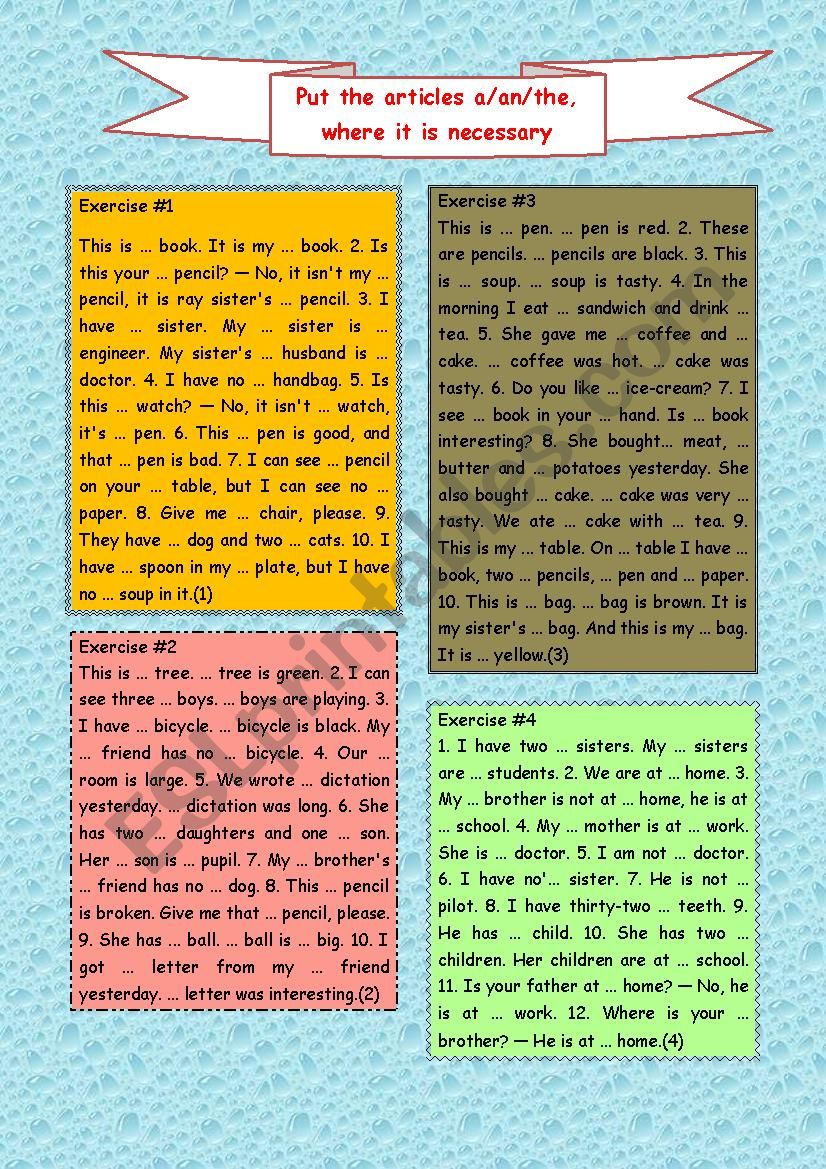 Put the articles a/an/the,
where it is necessary
Exercise #1
This is … book. It is my … book. 2. Is
this your … pencil? — No, it isn't my …
pencil, it is ray sister's … pencil. 3. I
have … sister. My … sister is …
engineer. My sister's … husband is …
doctor. 4. I have no … handbag. 5. Is
this … watch? — No, it isn't … watch,
it's … pen. 6. This … pen is good, and
that … pen is bad. 7. I can see … pencil
on your … table, but I can see no …
paper. 8. Give me … chair, please. 9.
They have … dog and two … cats. 10. I
have … spoon in my … plate, but I have
no … soup in it.(1)
Exercise #2
This is … tree. … tree is green. 2. I can
see three … boys. … boys are playing. 3.
I have … bicycle. … bicycle is black. My
… friend has no … bicycle. 4. Our …
room is large. 5. We wrote … dictation
yesterday. … dictation was long. 6. She
has two … daughters and one … son.
Her … son is … pupil. 7. My … brother's
… friend has no … dog. 8. This … pencil
is broken. Give me that … pencil, please.
9. She has … ball. … ball is … big. 10. I
got … letter from my … friend
yesterday. … letter was interesting.(2)
Exercise #3
This is … pen. … pen is red. 2. These
are pencils. … pencils are black. 3. This
is … soup. … soup is tasty. 4. In the
morning I eat … sandwich and drink …
tea. 5. She gave me … coffee and …
cake. … coffee was hot. … cake was
tasty. 6. Do you like … ice-cream? 7. I
see … book in your … hand. Is … book
interesting? 8. She bought… meat, …
butter and … potatoes yesterday. She
also bought … cake. … cake was very …
tasty. We ate … cake with … tea. 9.
This is my … table. On … table I have …
book, two … pencils, … pen and … paper.
10. This is … bag. … bag is brown. It is
my sister's … bag. And this is my … bag.
It is … yellow.(3)
Exercise #4
1. I have two … sisters. My … sisters
are … students. 2. We are at … home. 3.
My … brother is not at … home, he is at
… school. 4. My … mother is at … work.
She is … doctor. 5. I am not … doctor.
6. I have no'… sister. 7. He is not …
pilot. 8. I have thirty-two … teeth. 9.
He has … child. 10. She has two …
children. Her children are at … school.
11. Is your father at … home? — No, he
is at … work. 12. Where is your …
brother? — He is at … home.(4)
ESLprintables.com